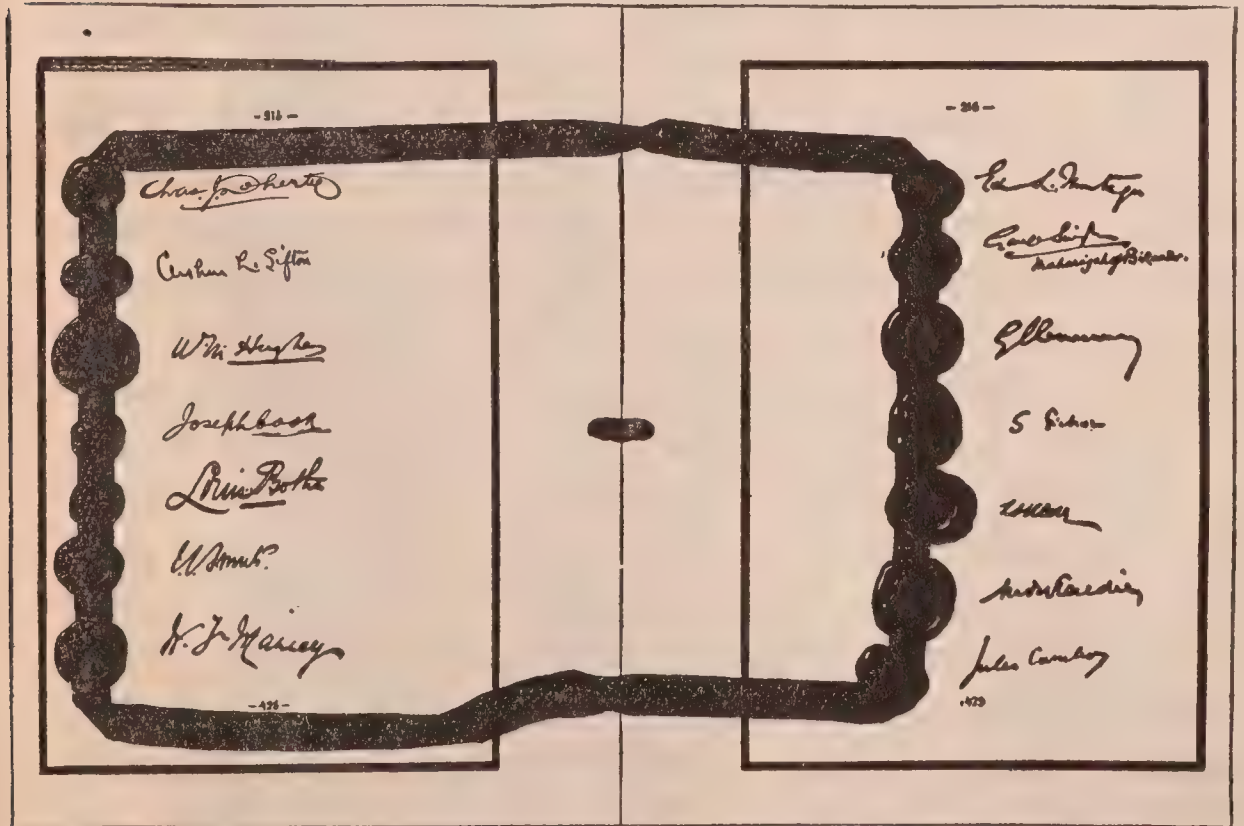 - 214 -
Chas. J. Doherty
Arthur L. Sifton
W. M. Hughes
Joseph Cook
Louis Botha
J. C. Smuts.
W. F. Massey
Ed. S. Montagu
Ganga Singh
Maharaja of Bikaner.
G Clemenceau
S Pichon
L. L. Klotz
André Tardieu
Jules Cambon